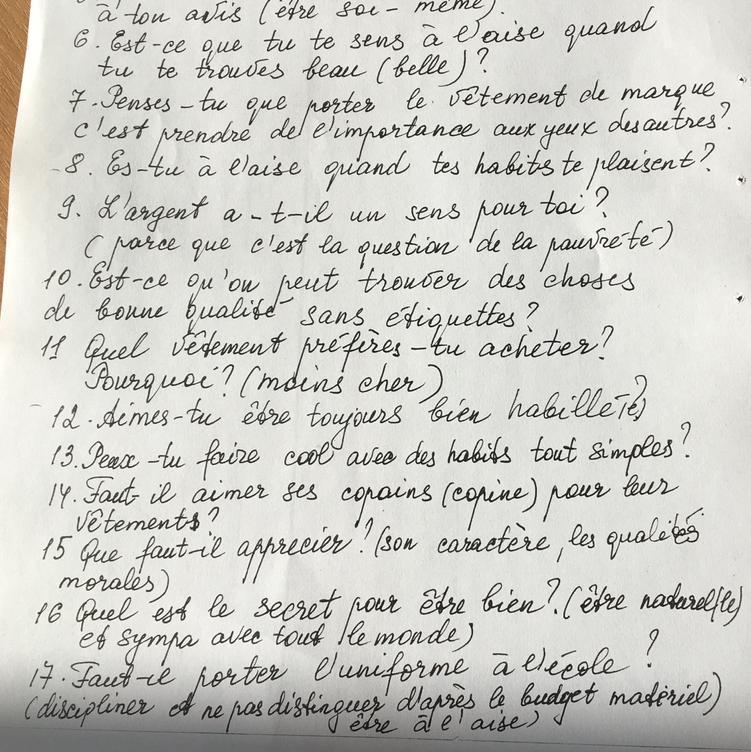 à ton avis (être soi-même).
6. Est-ce que tu te sens à l'aise quand
tu te trouves beau (belle)?
7. Penses-tu que porter le vêtement de marque
c'est prendre de l'importance aux yeux des autres?
8. Es-tu à l'aise quand tes habits te plaisent?
9. L'argent a-t-il un sens pour toi?
(parce que c'est la question de la pauvreté)
10. Est-ce qu'on peut trouver des choses
de bonne qualité sans étiquettes?
11 Quel vêtement préfères-tu acheter?
Pourquoi? (moins cher)
12. Aimes-tu être toujours bien habillé(e)?
13. Peux-tu faire cool avec des habits tout simples?
14. Faut-il aimer ses copains (copine) pour leur
vêtements?
15 Que faut-il apprecier? (son caractère, les qualités
morales)
16 Quel est le secret pour être bien? (être naturel(le)
et sympa avec tout le monde)
17. Faut-il porter l'uniforme à l'école?
(discipliner et ne pas distinguer d'après le budget matériel)
être à l'aise)